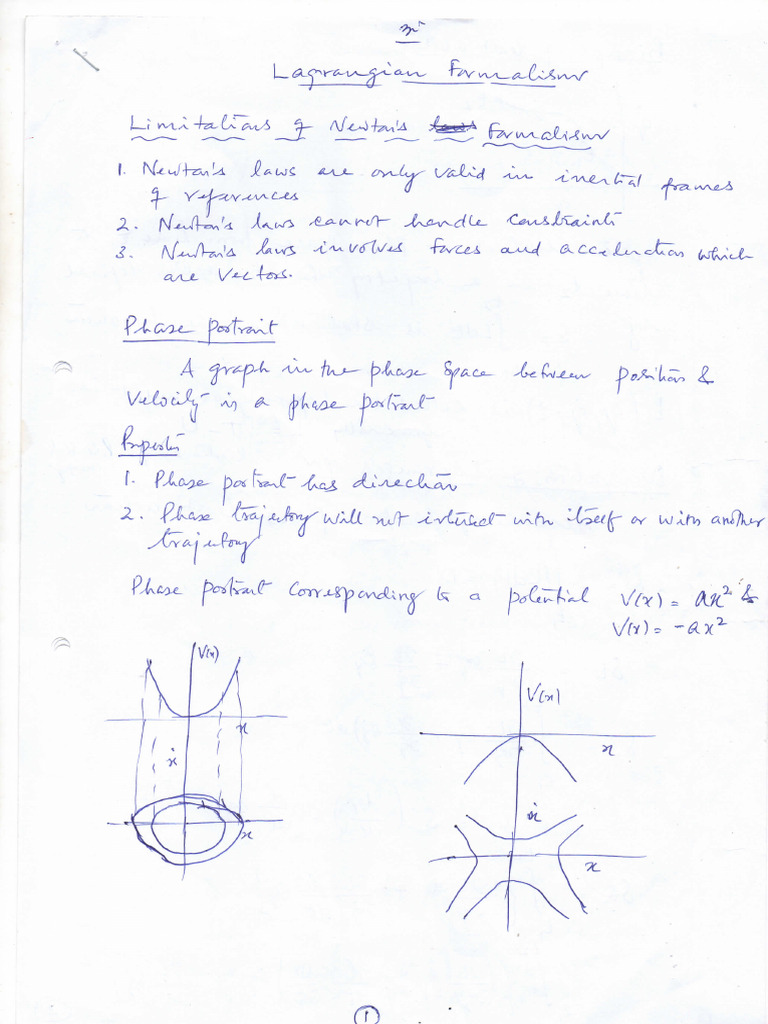 Lagrangian Formalism
Limitations of Newton's Formalism
1. Newton's laws are only valid in inertial frames
of references
2. Newton's laws cannot handle constraints
3. Newton's laws involves forces and acceleration which
are vectors.
Phase portrait
A graph in the phase space between position &
velocity is a phase portrait
Properties
1. Phase portrait has direction
2. Phase trajectory will not intersect with itself or with another
trajectory
Phase portrait corresponding to a potential V(x) = ax² &
V(x) = -ax²
V(x)
x
ẋ
x
V(x)
x
ẋ
x
1